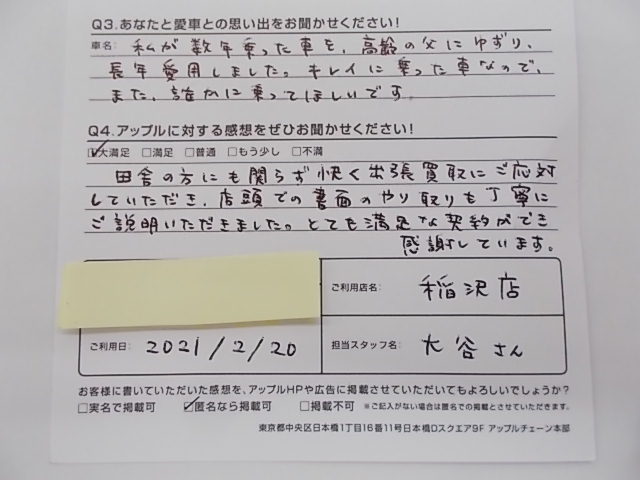 Q3.あなたと愛車との思い出をお聞かせください!
車名: 私が数年乗った車を、高齢の父にゆずり、
長年愛用しました。キレイに乗った車なので、
また、誰かに乗ってほしいです。
Q4.アップルに対する感想をぜひお聞かせください!
☑大満足 □満足 □普通 □もう少し □不満
田舎の方にも関らず快く出張買取にご応対
していただき、店頭での書面のやり取りも丁寧に
ご説明いただきました。とても満足な契約ができ
感謝しています。
ご利用店名: 稲沢店
ご利用日: 2021/2/20
担当スタッフ名: 大谷さん
お客様に書いていただいた感想を、アップルHPや広告に掲載させていただいてもよろしいでしょうか?
□実名で掲載可 ☑匿名なら掲載可 □掲載不可 ※ご記入がない場合は匿名での掲載とさせていただきます。
東京都中央区日本橋1丁目16番11号日本橋Dスクエア9F アップルチェーン本部